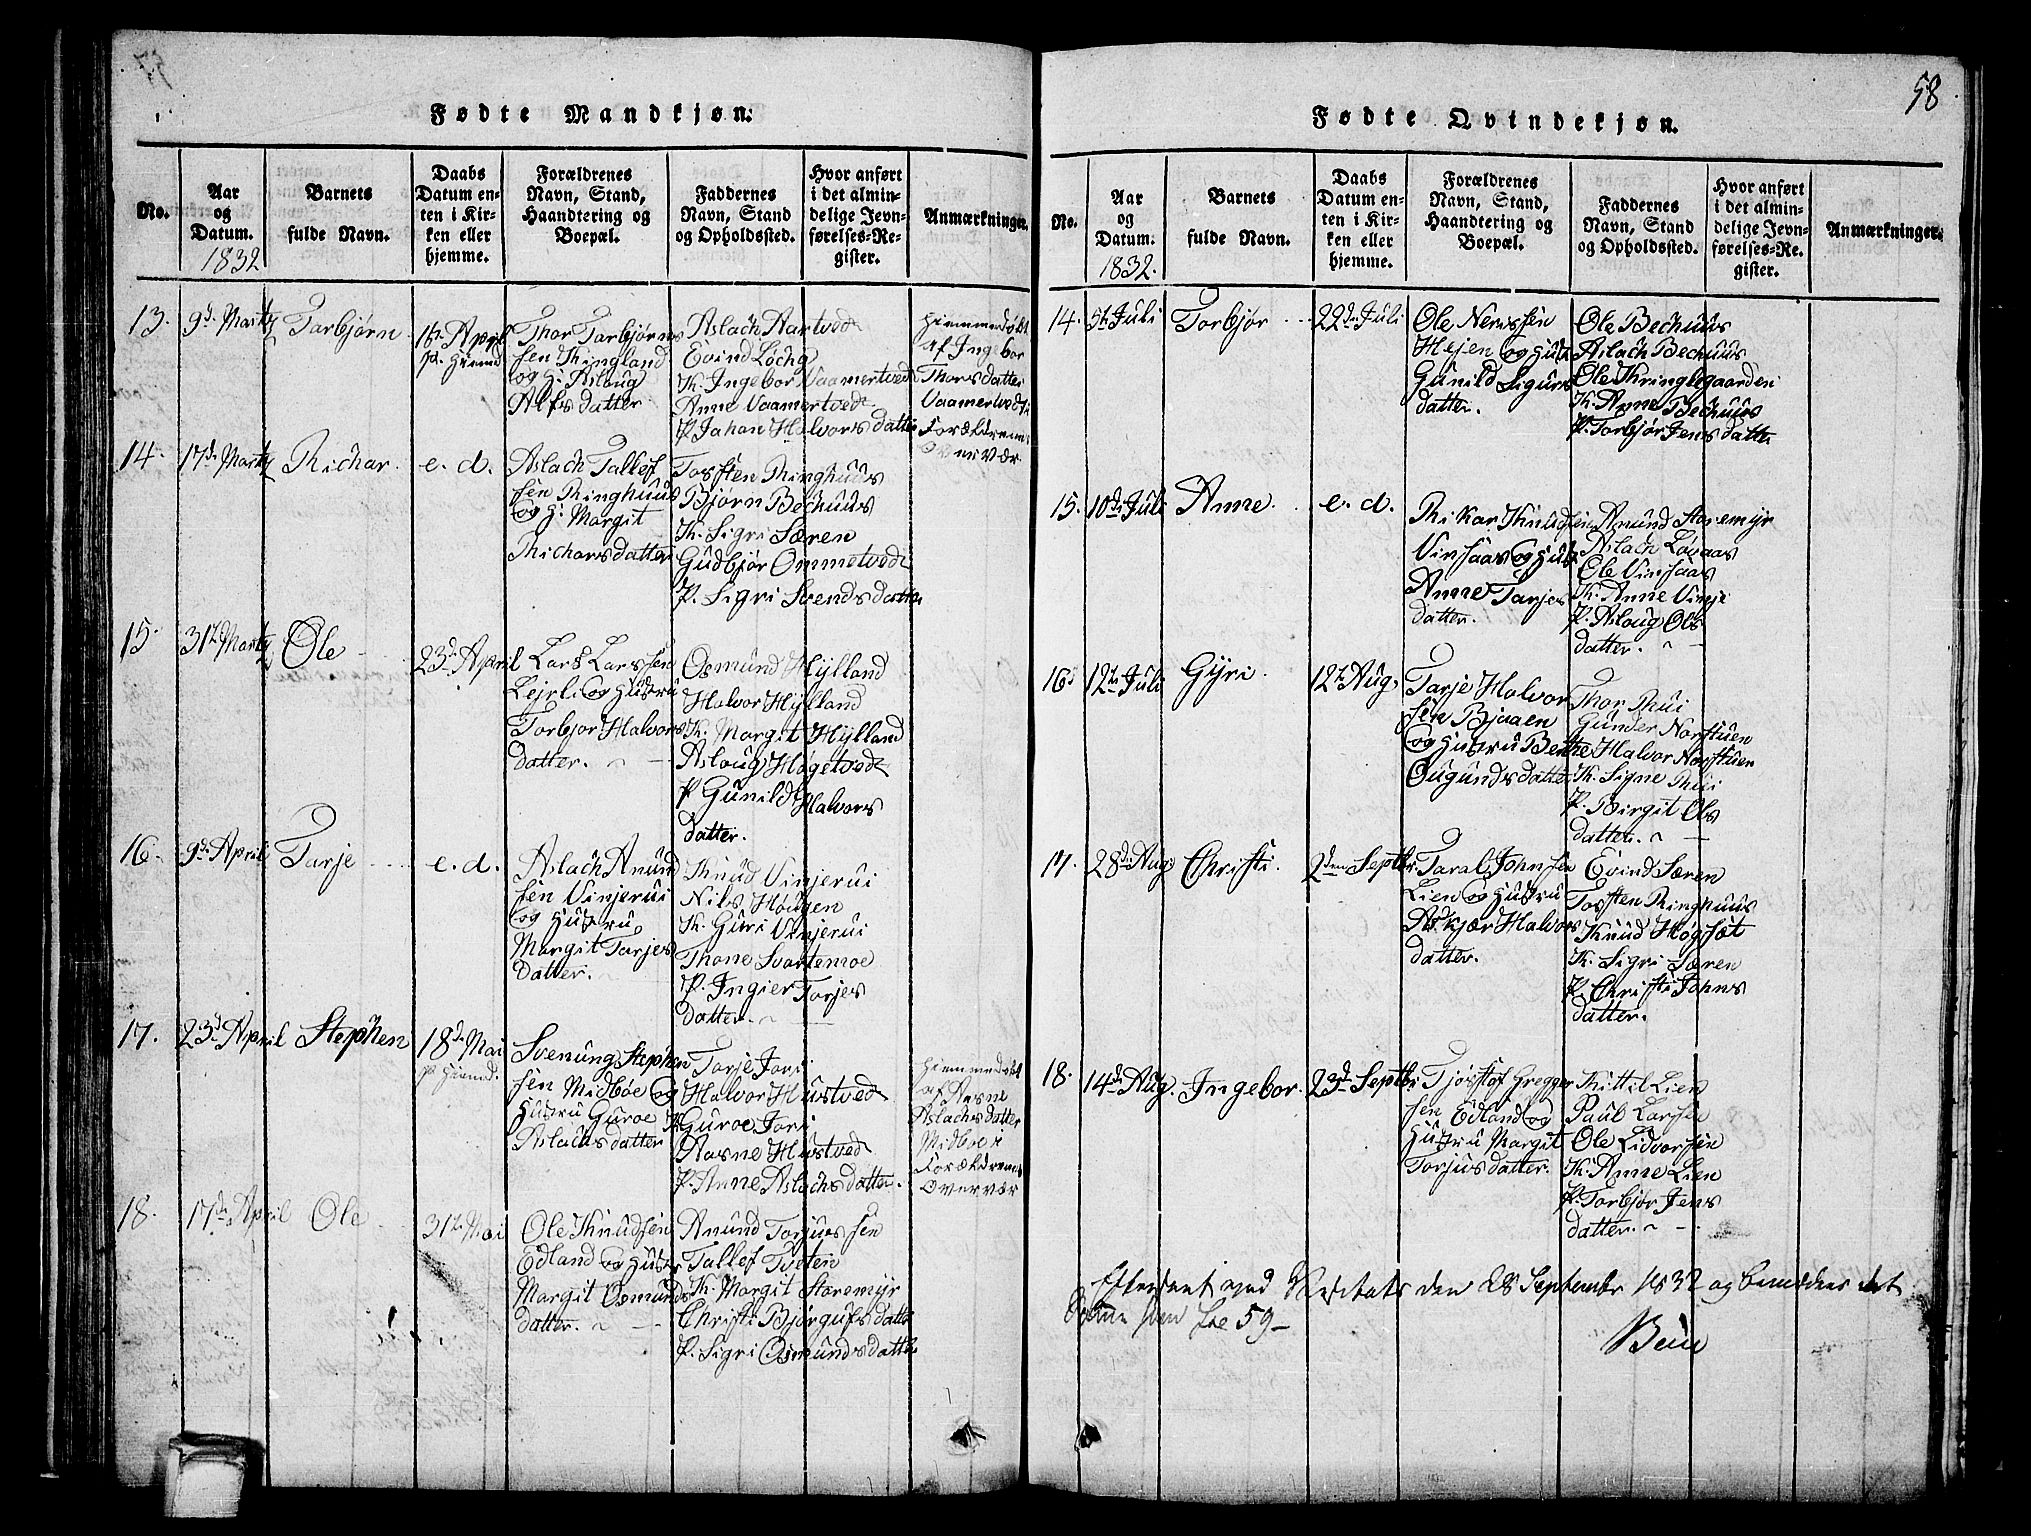 58
Fødte Mandkjøn.
No.
Aar
og
Datum.
1832
Barnets
fulde Navn.
Daabs
Datum en-
ten i Kir-
ken eller
hjemme.
Forældrenes
Navn, Stand,
Haandtering og
Boepæl.
Faddernes
Navn, Stand
og Opholdssted.
Hvor anført
i det almin-
delige Jevn-
førelses-Re-
gister.
Anmærkninger.
13.
9d Martz
Tarbjørn
Thor Tarbjørns
sen Ringland
og H: Aslaug
Alfs datter
Aslach Aartvedt
Evind Locha
K. Ingebor Vaamertvedt
Anne Vaamertvedt
P. Johan Halvors datter
Hiemmedøbt
af Ingebor
Thorsdatter
Vaamertvedt i
Forældrenes
Overvær.
14.
17d Martz
Richar.
e. d.
Aslach Tallef
sen Ringhuus
og H: Margit
Richarsdatter
Torsten Ringhuus
Bjørn Bechuus
K. Sigri Særen
Gudbjør Ommetvedt
P. Sigri Svends datter
15.
31t Martz
Ole
23d April
Lars Larssen
Lejrli og Hustru
Torbjor Halvors
datter.
Osmund Hylland
Halvor Hylland
K. Margit Hylland
Aslaug Høgetvedt
P. Gunild Halvors
datter.
16.
9d April
Tarje
e. d.
Aslach Anund
sen Vinjerui
og Hustru
Margit Tarjes
datter.
Knud Vinjerui
Nils Hougen
K. Guri Vinjerui
Thone Svartemoe
P. Ingier Torjes
datter.
17.
23d April
Stephen
18d Mai
Svenung Stephen
sen Midbøe og
Hustru Guroe
Aslachsdatter
Tarje Jori
Halvor Hustved
K. Guroe Jori
Aasne Hustved
P. Anne Aslachsdatter.
Hiemmedøbt
af Aasne
Aslachsdatter
Midboe i
Forældrenes
Overvær
18.
17d April
Ole
31t Mai
Ole Knudsen
Edland og Hustr
Margit Osmunds
datter.
Anund Torjussen
Tallef Tveten
K. Margit Storemyr
Christi Bjørgufs datter
P. Sigri Osmunds datter
Fødte Qvindekjøn.
No.
Aar
og
Datum.
1832.
Barnets
fulde Navn.
Daabs
Datum en-
ten i Kir-
ken eller
hjemme.
Forældrenes
Navn, Stand,
Haandtering og
Boepæl.
Faddernes
Navn, Stand
og Opholdssted.
Hvor anført
i det almin-
delige Jevn-
førelses-Re-
gister.
Anmærkninger.
14.
5t Juli
Torbjør
22d Juli
Ole Nerissen
Hejen og Hust
Gunild Sigurs
datter.
Ole Bechuus
Aslach Bechuus
Ole Kringlegaarden
K. Anne Bechuus
P. Torbjør Jens datter
15.
10d Juli
Anne
e. d.
Rikar Knudsen
Vinsaas og Hust
Anne Tarjes
datter.
Anund Storemyr
Aslach Lovaas
Ole Vinsaas
K. Anne Vinje
P. Aslaug Ols
datter.
16.
12t Juli
Gyri
12t Aug.
Tarje Halvor
sen Bjaaen
og Hustru Benthe
Ougundsdatter
Thor Rui
Gunder Norstuen
Halvor Norstuen
K. Signe Rui
P. Birgit Ols
datter.
17.
28d Aug
Christi.
2den Septbr
Taral Johnsen
Lien og Hustru
Askjær Halvors
datter.
Evind Særen
Torsten Ringhuus
Knud Høgsæt
K. Sigri Særen
P. Christi Johns
datter.
18.
14d Aug.
Ingebor.
23d Septbr
Tjostof Gregger
sen Edland og
Hustru Margit
Torjusdatter.
Kittil Lien
Paul Larsen
Ole Lidvorsen
K. Anne Lien
P. Torbjør Jens
datter.
Efterseet ved Visitats den 28 September 1832 og bemærkes det
59